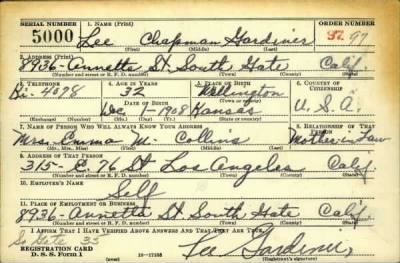 SERIAL NUMBER 1. NAME (Print) ORDER NUMBER
5000 Lee Chapman Gardiner 97
(First) (Middle) (Last)
2. ADDRESS (Print)
8936 - Annetta St. South Gate Calif.
(Number and street or R. F. D. number) (Town) (County) (State)
3. TELEPHONE 4. AGE IN YEARS 5. PLACE OF BIRTH 6. COUNTRY OF CITIZENSHIP
Ki - 4098 32 Wellington
DATE OF BIRTH (Town or county)
Dec 1 - 1908 Kansas U.S.A.
(Exchange) (Number) (Mo.) (Day) (Yr.) (State or country)
7. NAME OF PERSON WHO WILL ALWAYS KNOW YOUR ADDRESS 8. RELATIONSHIP OF THAT PERSON
Mrs. Emma M. Collins Mother in Law
(Mr., Mrs., Miss) (First) (Middle) (Last)
9. ADDRESS OF THAT PERSON
315 - E. 96 St Los Angeles Calif
(Number and street or R. F. D. number) (Town) (County) (State)
10. EMPLOYER'S NAME
Self
11. PLACE OF EMPLOYMENT OR BUSINESS
8936 - Annetta St. South Gate Calif.
(Number and street or R. F. D. number) (Town) (County) (State)
I AFFIRM THAT I HAVE VERIFIED ABOVE ANSWERS AND THAT THEY ARE TRUE.
So Gate 35
REGISTRATION CARD
D. S. S. Form 1 16-17105 Lee Gardiner
(Registrant's signature)